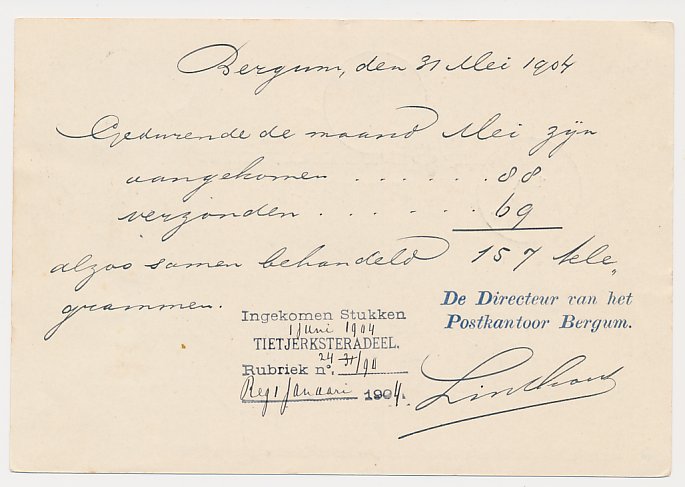 Bergum, den 31 Mei 1904
Gedurende de maand Mei zijn
aangekomen . . . . . . 88
verzonden . . . . . . 69
alzoo samen behandeld 157 tele„
grammen.
De Directeur van het
Postkantoor Bergum.
Ingekomen Stukken
1 Juni 1904
TIETJERKSTERADEEL.
24
Rubriek nº. 31/90
Reg 1 Januari 1904.